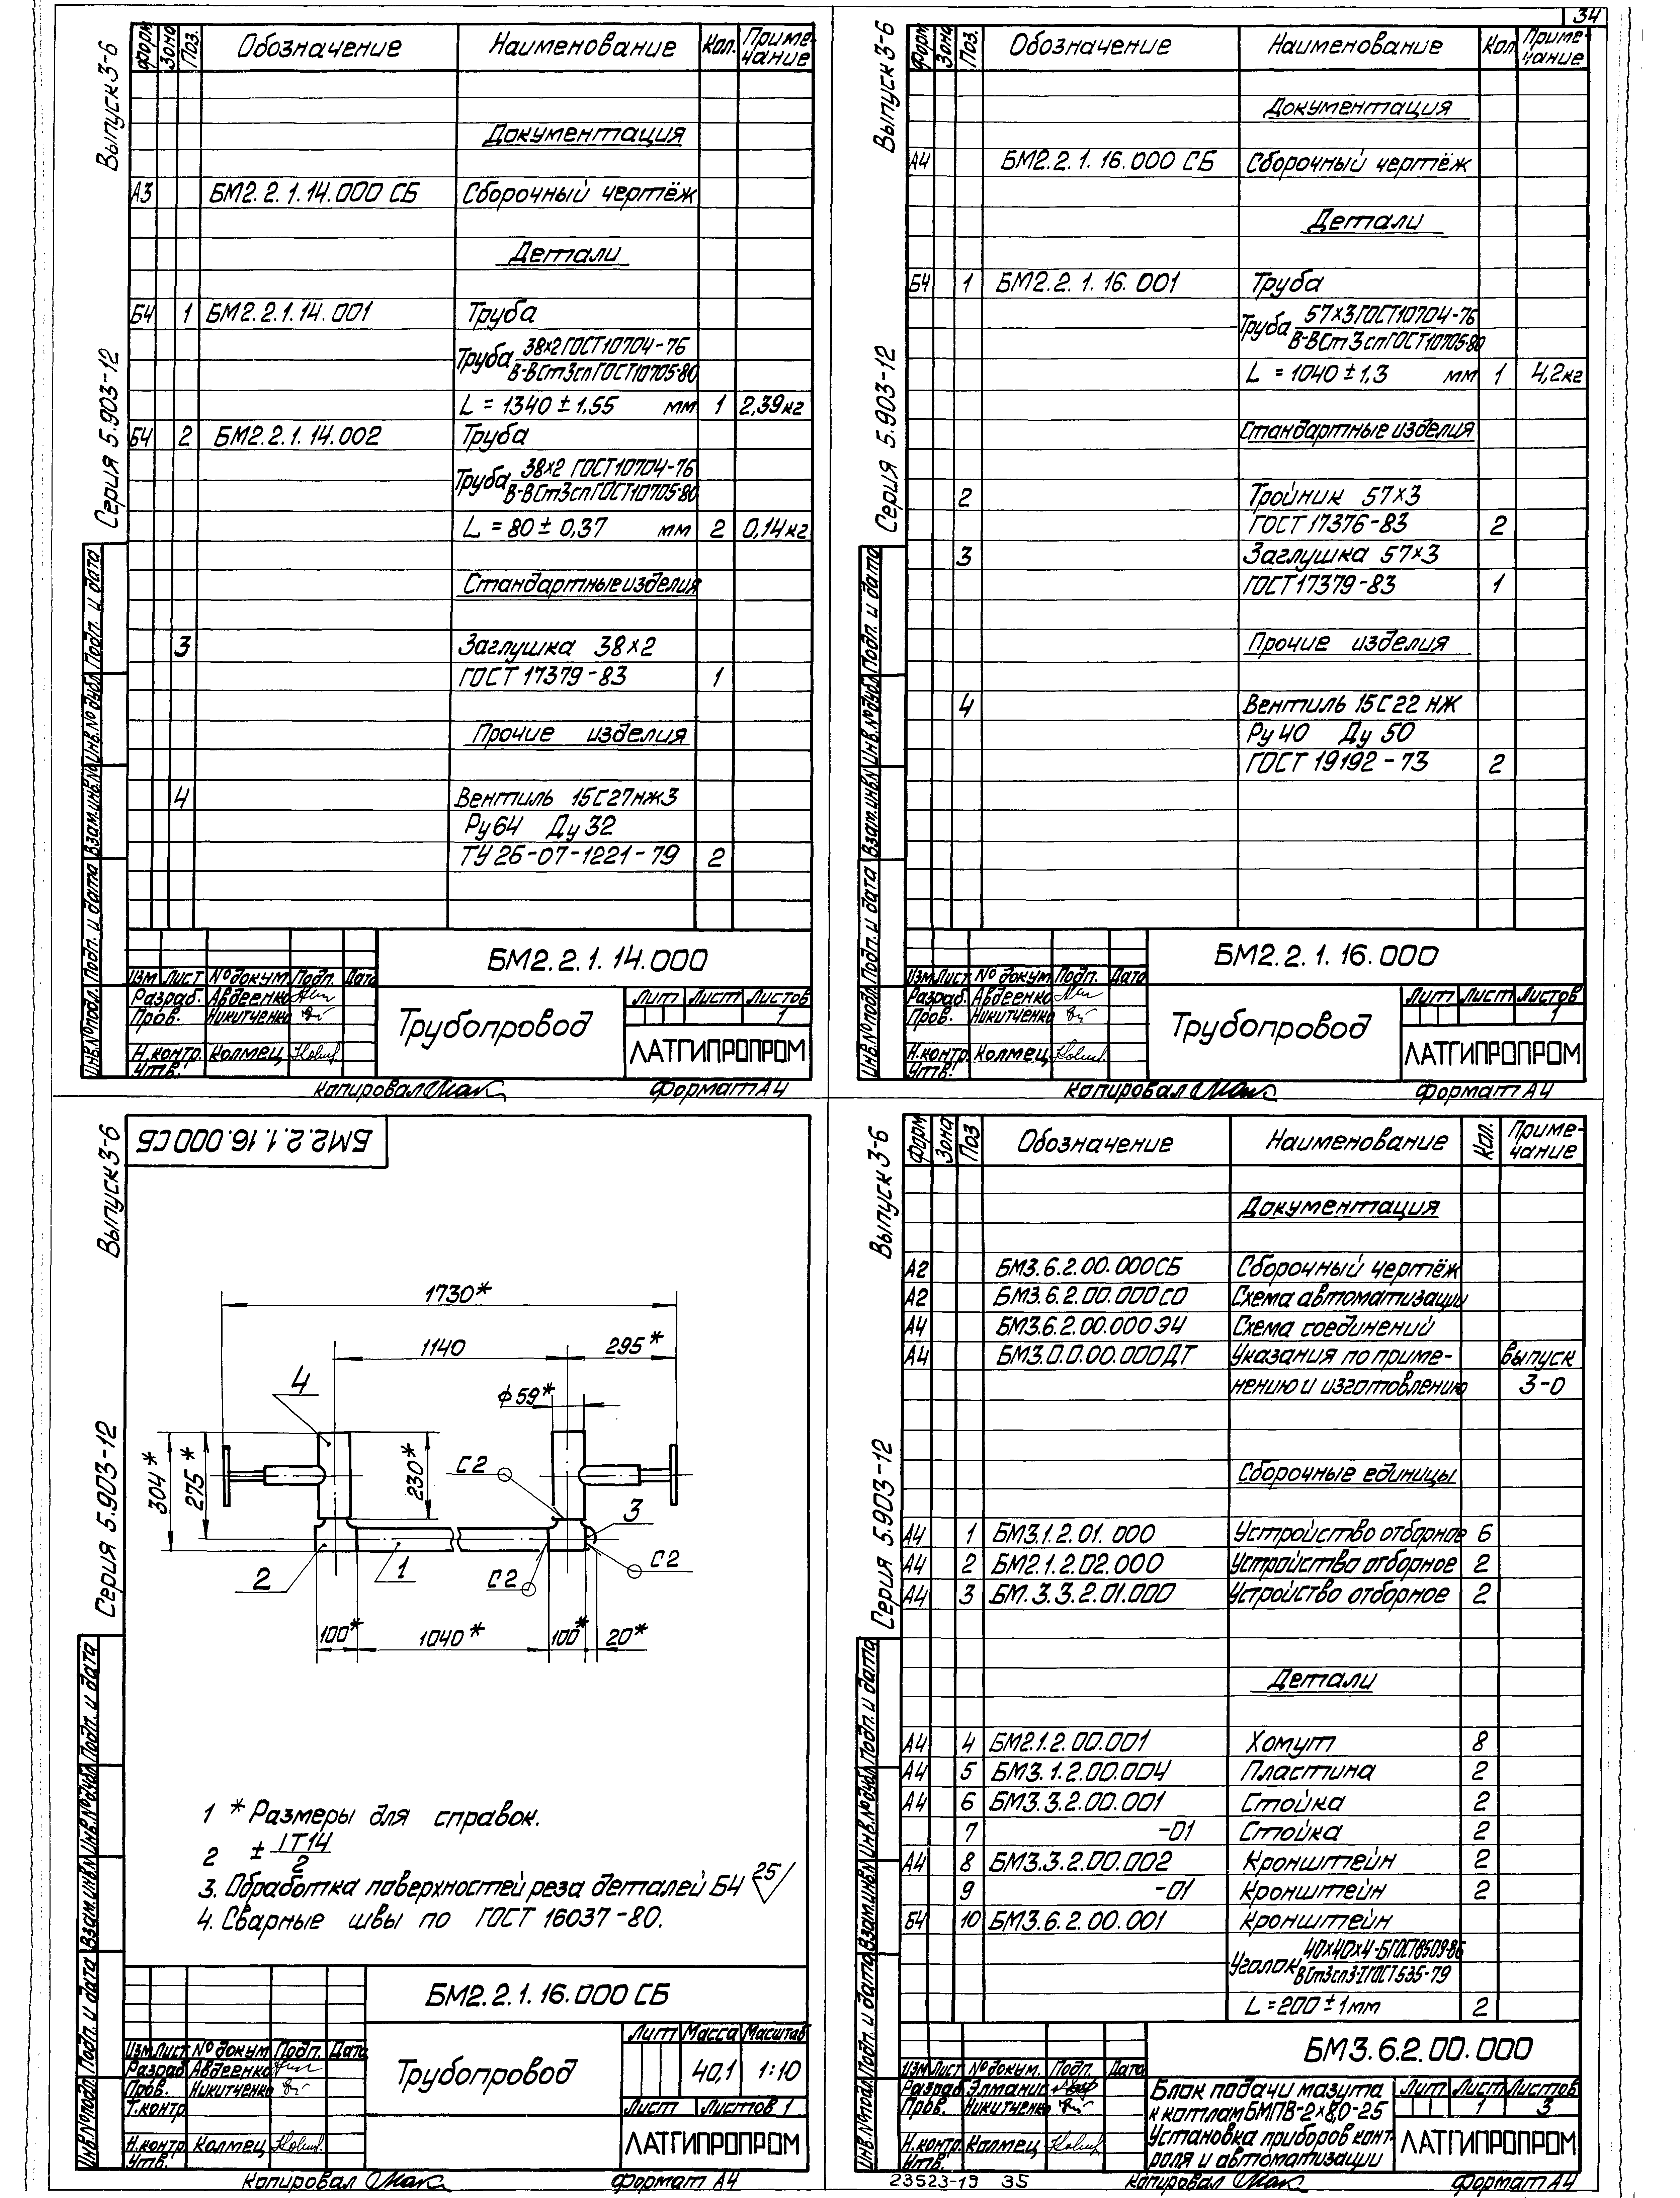 34
Выпуск 3-6
Серия 5.903-12
Форм Зона Поз. Обозначение Наименование Кол. Приме-чание
Документация
А3 БМ2.2.1.14.000 СБ Сборочный чертёж
Детали
Б4 1 БМ2.2.1.14.001 Труба
Труба 38×2 ГОСТ10704-76
В-ВСт3сп ГОСТ10705-80
L = 1340 ± 1,55 мм 1 2,39кг
Б4 2 БМ2.2.1.14.002 Труба
Труба 38×2 ГОСТ10704-76
В-ВСт3сп ГОСТ10705-80
L = 80 ± 0,37 мм 2 0,14кг
Стандартные изделия
3 Заглушка 38×2
ГОСТ 17379-83 1
Прочие изделия
4 Вентиль 15С27нж3
Ру 64 Ду 32
ТУ 26-07-1221-79 2
Инв.№подл. Подп. и дата Взам.инв.№ Инв.№дубл. Подп. и дата
БМ2.2.1.14.000
Изм Лист № докум. Подп. Дата
Разраб. Авдеенко
Пров. Никитченко
Н.контр. Колмец
Утв.
Трубопровод
Лит Лист Листов
1
ЛАТГИПРОПРОМ
Копировал Формат А4
Выпуск 3-6
Серия 5.903-12
Форм Зона Поз. Обозначение Наименование Кол. Приме-чание
Документация
А4 БМ2.2.1.16.000 СБ Сборочный чертёж
Детали
Б4 1 БМ2.2.1.16.001 Труба
Труба 57×3 ГОСТ10704-76
В-ВСт3сп ГОСТ10705-80
L = 1040 ± 1,3 мм 1 4,2кг
Стандартные изделия
2 Тройник 57×3
ГОСТ 17376-83 2
3 Заглушка 57×3
ГОСТ 17379-83 1
Прочие изделия
4 Вентиль 15С22 НЖ
Ру 40 Ду 50
ГОСТ 19192-73 2
Инв.№подл. Подп. и дата Взам.инв.№ Инв.№дубл. Подп. и дата
БМ2.2.1.16.000
Изм Лист № докум. Подп. Дата
Разраб. Авдеенко
Пров. Никитченко
Н.контр. Колмец
Утв.
Трубопровод
Лит Лист Листов
1
ЛАТГИПРОПРОМ
Копировал Формат А4
Выпуск 3-6
Серия 5.903-12
БМ2.2.1.16.000 СБ
1730*
1140 295*
4
ϕ59*
304* 275* 230*
С2
3
2 1 С2 С2
100* 1040* 100* 20*
1 * Размеры для справок.
2 ± IT14/2
3. Обработка поверхностей реза деталей Б4 25/
4. Сварные швы по ГОСТ 16037-80.
Инв.№подл. Подп. и дата Взам.инв.№ Инв.№дубл. Подп. и дата
БМ2.2.1.16.000 СБ
Изм Лист № докум. Подп. Дата
Разраб. Авдеенко
Пров. Никитченко
Т.контр
Н.контр. Колмец
Утв.
Трубопровод
Лит Масса Масштаб
40,1 1:10
Лист Листов 1
ЛАТГИПРОПРОМ
Копировал Формат А4
Выпуск 3-6
Серия 5.903-12
Форм Зона Поз Обозначение Наименование Кол. Приме-чание
Документация
А2 БМ3.6.2.00.000СБ Сборочный чертёж
А2 БМ3.6.2.00.000СО Схема автоматизации
А4 БМ3.6.2.00.000Э4 Схема соединений
А4 БМ3.0.0.00.000ДТ Указания по приме- выпуск
нению и изготовлению 3-0
Сборочные единицы
А4 1 БМ3.1.2.01.000 Устройство отборное 6
А4 2 БМ2.1.2.02.000 Устройства отборное 2
А4 3 БМ.3.3.2.01.000 Утройство отборное 2
Детали
А4 4 БМ2.1.2.00.001 Хомут 8
А4 5 БМ3.1.2.00.004 Пластина 2
А4 6 БМ3.3.2.00.001 Стойка 2
7 -01 Стойка 2
А4 8 БМ3.3.2.00.002 Кронштейн 2
9 -01 Кронштейн 2
Б4 10 БМ3.6.2.00.001 Кронштейн
Уголок 40×40×4-БГОСТ8509-86
ВСт3сп3-IГОСТ535-79
L = 200 ± 1мм 2
Инв.№подл. Подп. и дата Взам.инв.№ Инв.№дубл. Подп. и дата
БМ3.6.2.00.000
Изм Лист № докум. Подп. Дата
Разраб. Элманис
Пров. Никитченко
Н.контр. Колмец
Утв.
Блок подачи мазута
к котлам БМПВ-2×8,0-25
Установка приборов конт-
роля и автоматизации
Лит Лист Листов
1 3
ЛАТГИПРОПРОМ
23523-19 35 Копировал Формат А4